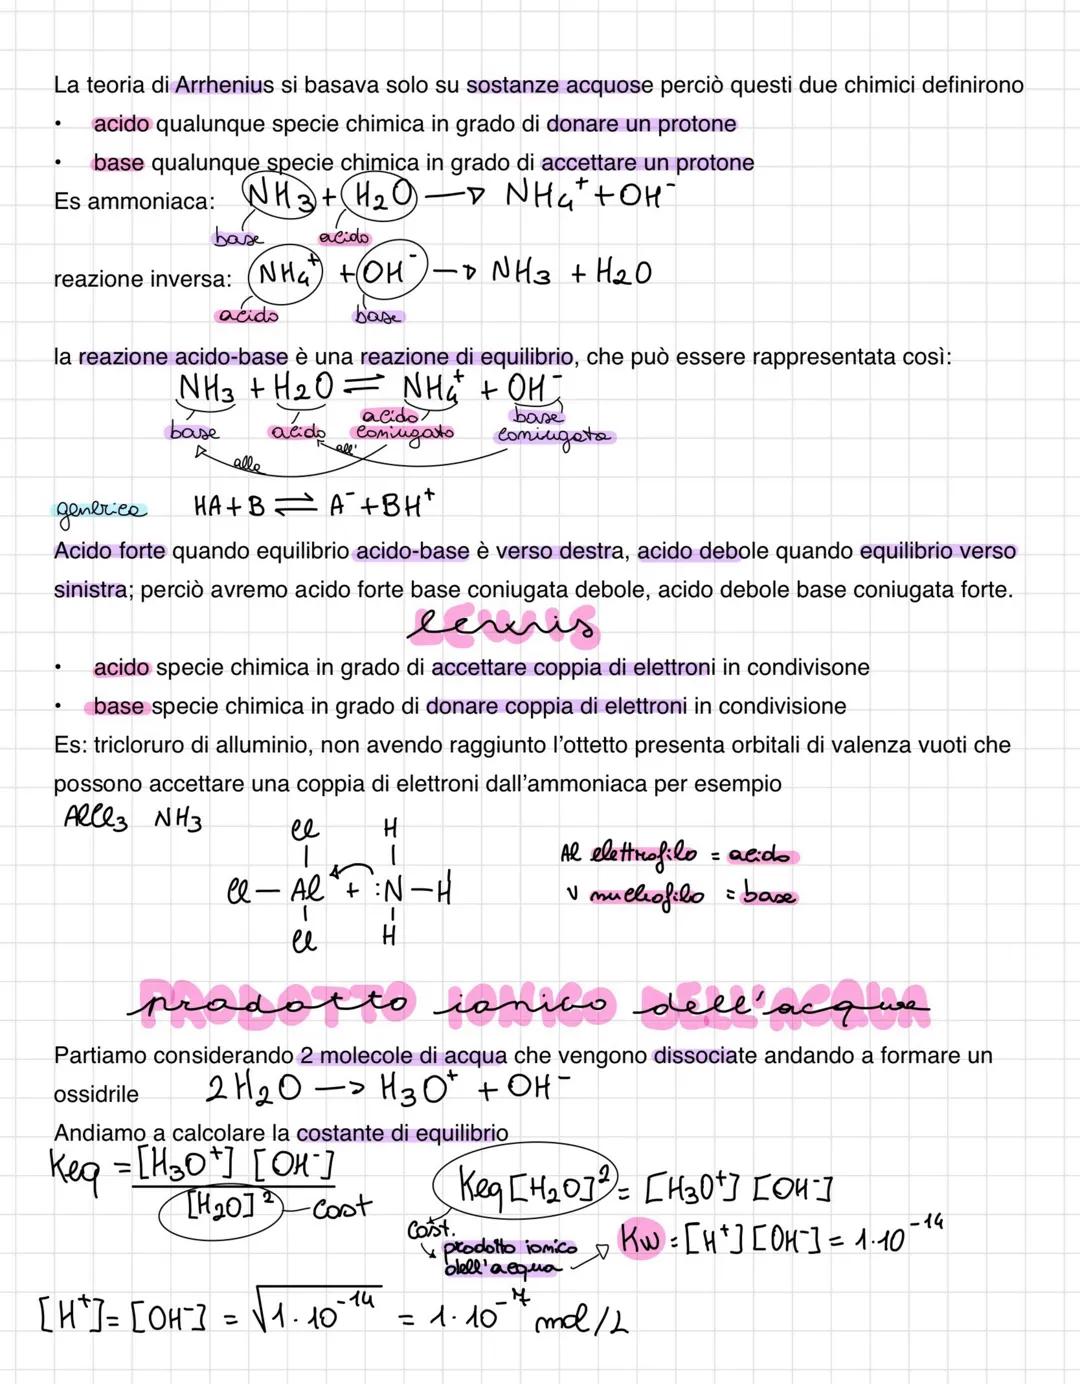 La teoria di Arrhenius si basava solo su sostanze acquose perciò questi due chimici definirono
• acido qualunque specie chimica in grado di donare un protone
• base qualunque specie chimica in grado di accettare un protone
Es ammoniaca: NH3 + H2O → NH4⁺ + OH⁻
base acido
reazione inversa: NH4⁺ + OH⁻ → NH3 + H2O
acido base
la reazione acido-base è una reazione di equilibrio, che può essere rappresentata così:
NH3 + H2O ⇌ NH4⁺ + OH⁻
base acido acido coniugato base coniugata
alla all'
generica HA + B ⇌ A⁻ + BH⁺
Acido forte quando equilibrio acido-base è verso destra, acido debole quando equilibrio verso
sinistra; perciò avremo acido forte base coniugata debole, acido debole base coniugata forte.
lewis
• acido specie chimica in grado di accettare coppia di elettroni in condivisone
• base specie chimica in grado di donare coppia di elettroni in condivisione
Es: tricloruro di alluminio, non avendo raggiunto l'ottetto presenta orbitali di valenza vuoti che
possono accettare una coppia di elettroni dall'ammoniaca per esempio
AlCl3 NH3
Cl H
Cl — Al + :N — H
Cl H
Al elettrofilo = acido
N nucleofilo = base
prodotto ionico dell'acqua
Partiamo considerando 2 molecole di acqua che vengono dissociate andando a formare un
ossidrile 2H2O → H3O⁺ + OH⁻
Andiamo a calcolare la costante di equilibrio
Keq = [H3O⁺] [OH⁻]
[H2O]² cost
Keq [H2O]² = [H3O⁺] [OH⁻]
cost.
prodotto ionico
dell'acqua
Kw = [H⁺] [OH⁻] = 1·10⁻¹⁴
[H⁺] = [OH⁻] = √1·10⁻¹⁴ = 1·10⁻⁷ mol/L